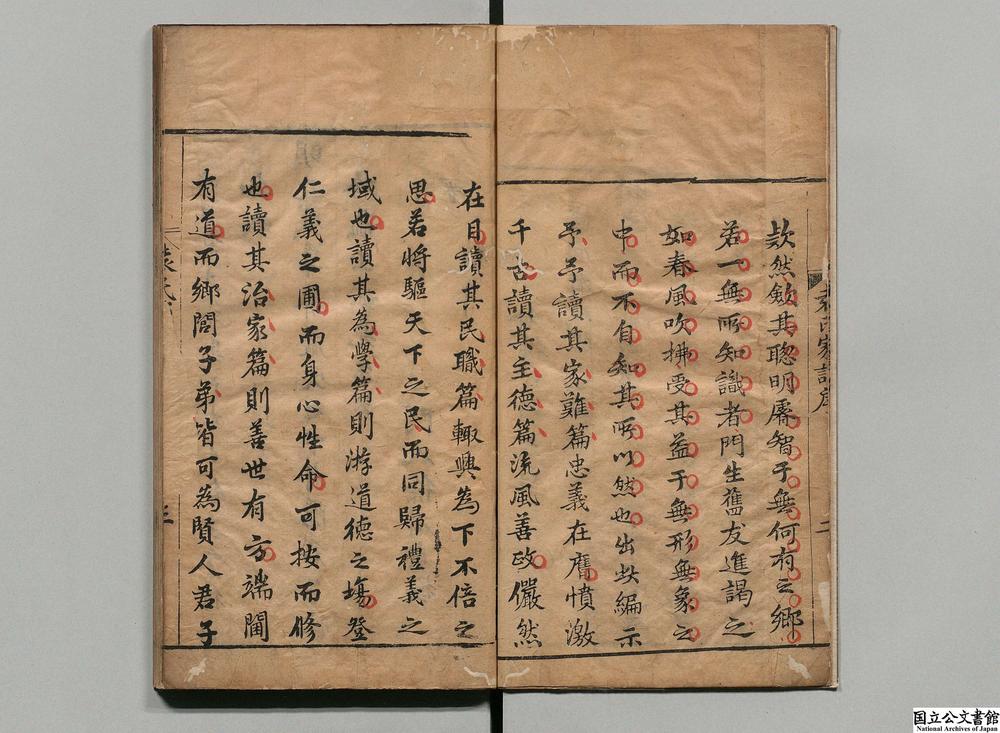 歉然斂其聦明睿智于無何有之鄉
若一無所知識者門生舊友進謁之
如春風吹拂受其益于無形無象之
中而不自知其所以然也出此編示
予予讀其家難篇忠義在膺憤激
千古讀其主德篇流風善政儼然
袁氏家訓序
二
在目讀其民職篇輙興為下不倍之
思若將驅天下之民而同歸禮義之
域也讀其為學篇則游道德之塲登
仁義之圃而身心性命可按而修
也讀其治家篇則善世有方端閫
有道而鄉閭子弟皆可為賢人君子
袁氏
三
国立公文書館
National Archives of Japan